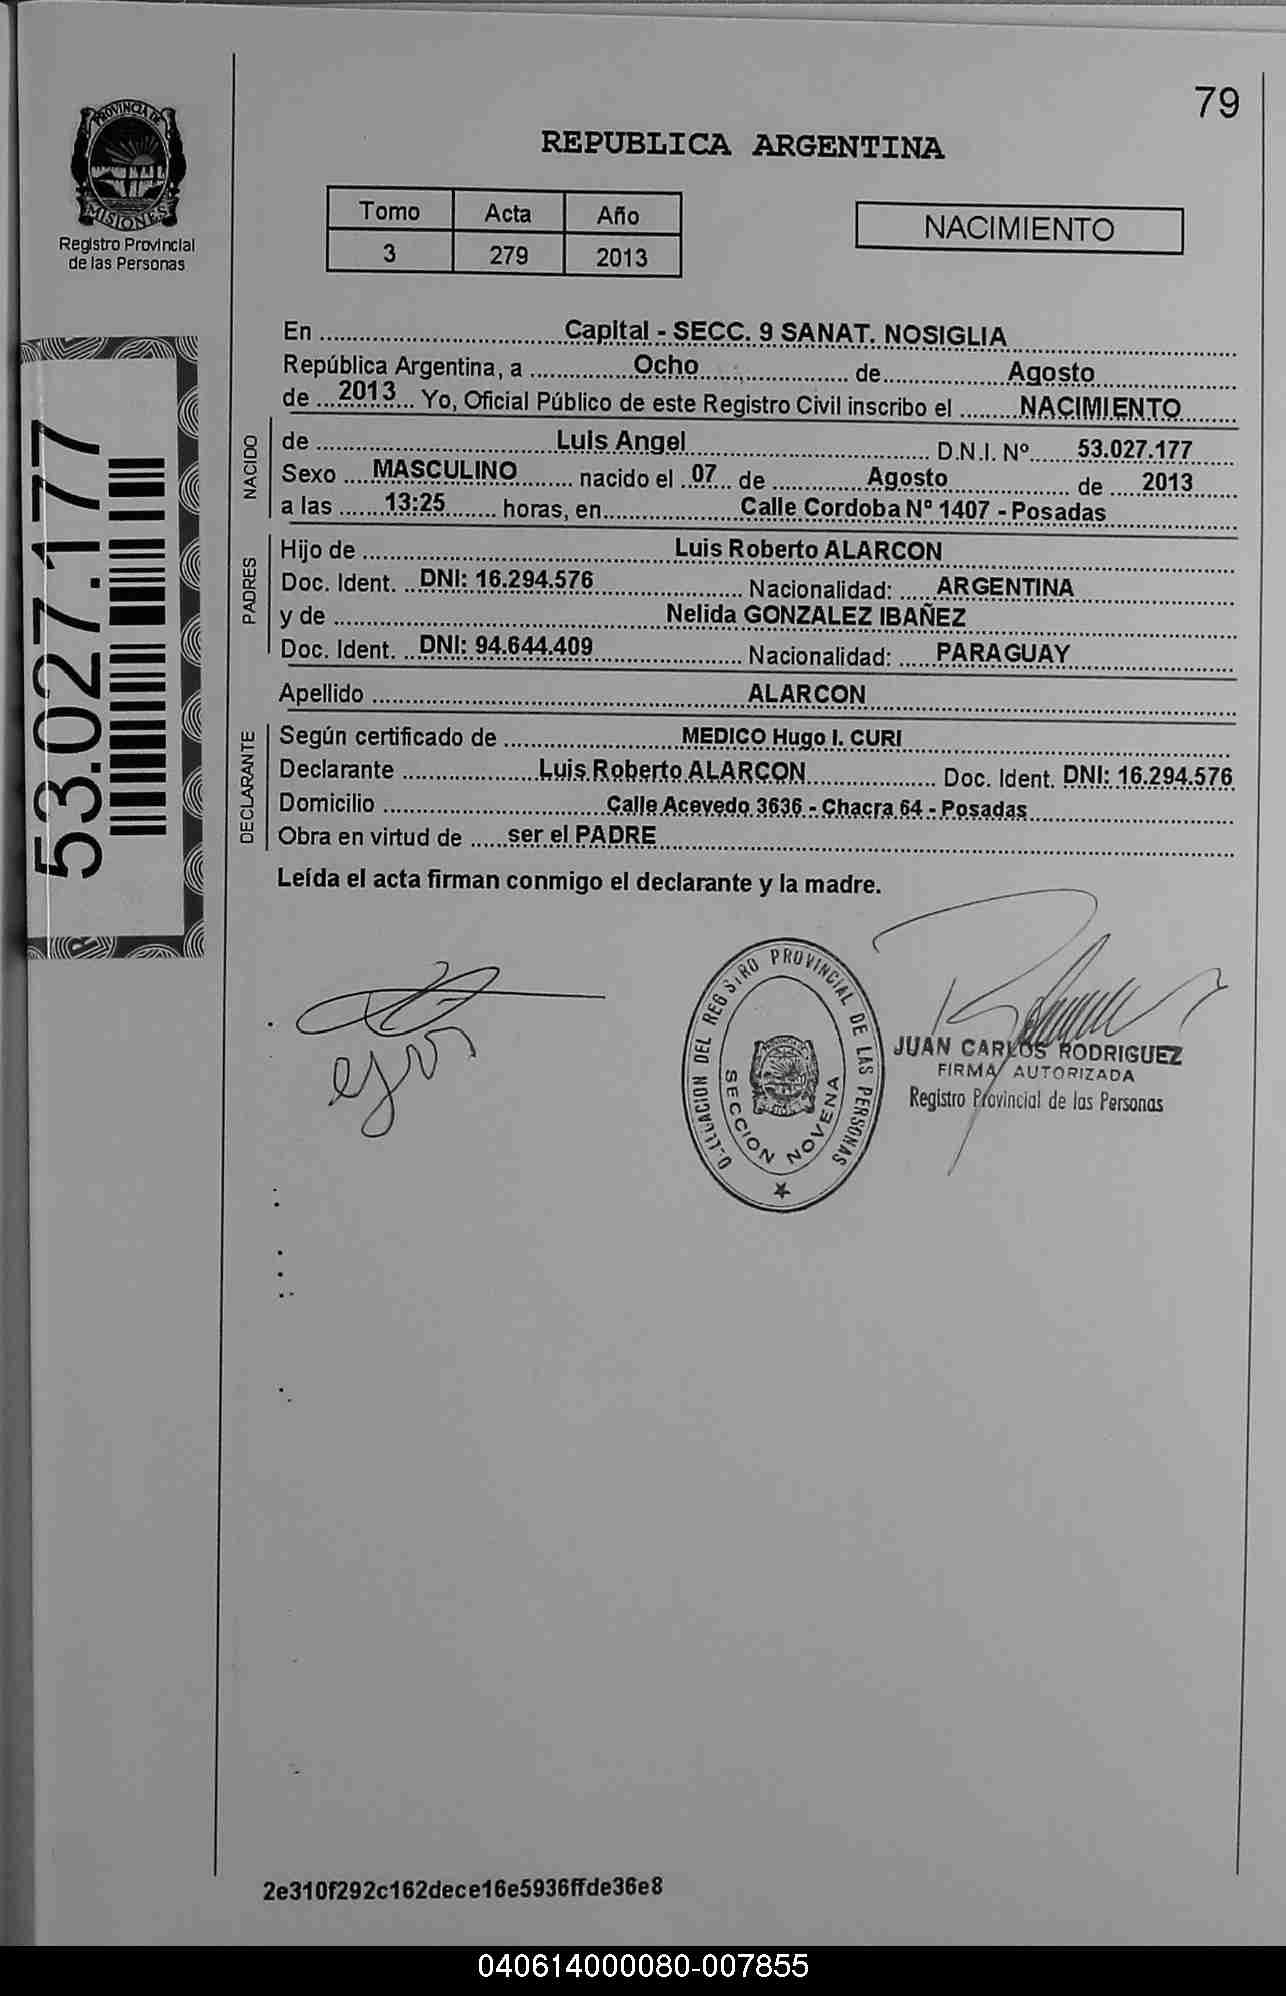 79
PROVINCIA DE
MISIONES
Registro Provincial
de las Personas
REPUBLICA ARGENTINA
Tomo Acta Año
3 279 2013
NACIMIENTO
53.027.177
En Capital - SECC. 9 SANAT. NOSIGLIA
República Argentina, a Ocho de Agosto
de 2013 Yo, Oficial Público de este Registro Civil inscribo el NACIMIENTO
NACIDO
de Luis Angel D.N.I. Nº 53.027.177
Sexo MASCULINO nacido el 07 de Agosto de 2013
a las 13:25 horas, en Calle Cordoba Nº 1407 - Posadas
PADRES
Hijo de Luis Roberto ALARCON
Doc. Ident. DNI: 16.294.576 Nacionalidad: ARGENTINA
y de Nelida GONZALEZ IBAÑEZ
Doc. Ident. DNI: 94.644.409 Nacionalidad: PARAGUAY
Apellido ALARCON
DECLARANTE
Según certificado de MEDICO Hugo I. CURI
Declarante Luis Roberto ALARCON Doc. Ident. DNI: 16.294.576
Domicilio Calle Acevedo 3636 - Chacra 64 - Posadas
Obra en virtud de ser el PADRE
Leída el acta firman conmigo el declarante y la madre.
DEL REGISTRO PROVINCIAL DE LAS PERSONAS
SECCION NOVENA
JUAN CARLOS RODRIGUEZ
FIRMA AUTORIZADA
Registro Provincial de las Personas
2e310f292c162dece16e5936ffde36e8
040614000080-007855